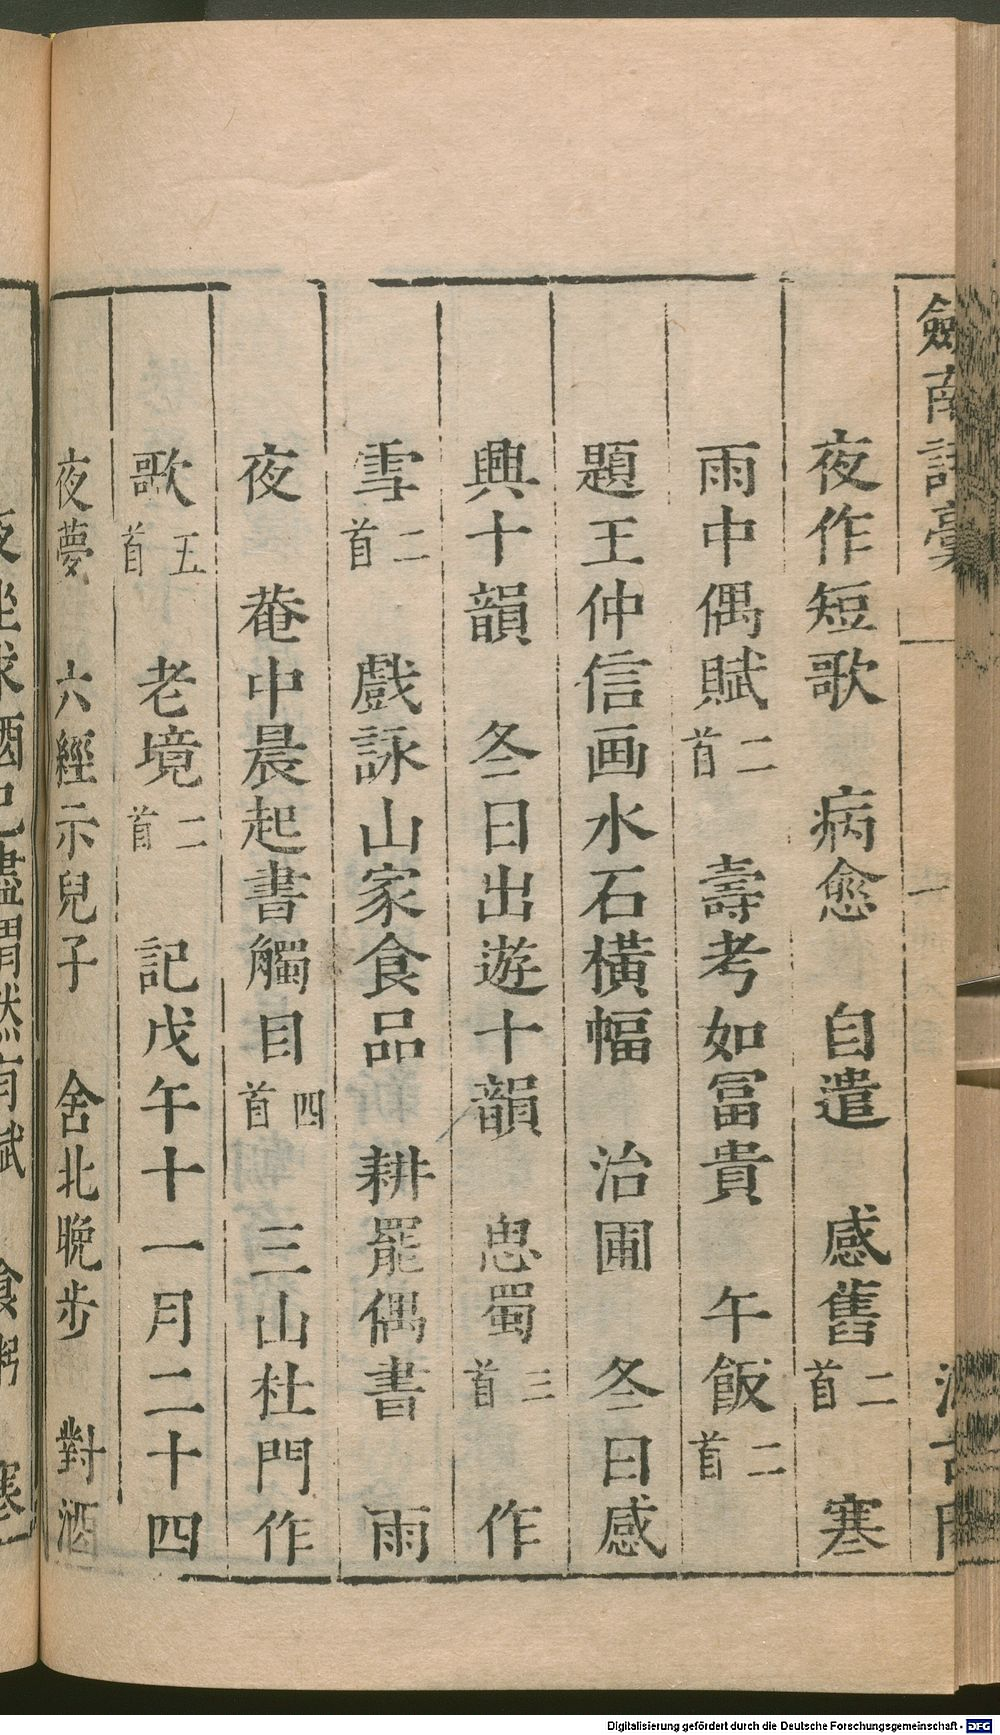 劍南詩藁
一
夜作短歌　病愈　自遣　感舊二首　寒
雨中偶賦二首　壽考如冨貴　午飯二首
題王仲信画水石橫幅　治圃　冬日感
興十韻　冬日出遊十韻　思蜀三首　作
雪二首　戲詠山家食品　耕罷偶書　雨
夜　菴中晨起書觸目四首　三山杜門作
歌五首　老境二首　記戊午十一月二十四
夜夢　六經示兒子　舍北晚步　對酒
夜坐求酒已盡喟然有賦　食粥　寒
Digitalisierung gefördert durch die Deutsche Forschungsgemeinschaft - DFG